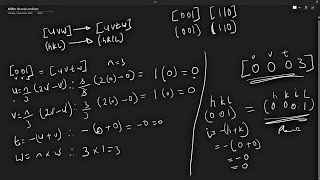 Miller Bravais Indices
[uvw] → [uvtw]
(hkl) → (hkil)
[001] [110]
(001) (110)
[001] = [uvtw] n=3
u = n/3 (2u-v) ∴ 3/3 (2(0)-0) = 1(0) = 0
v = n/3 (2v-u) ∴ 3/3 (2(0)-0) = 1(0) = 0
t = -(u+v) ∴ -(0+0) = -0 = 0
w = n×w ∴ 3×1=3
u v t
[0 0 0 3]
h k l h k i l
(0 0 1) = (0 0 0 1)
i = -(h+k)
= -(0+0)
= -0
= 0
Plane